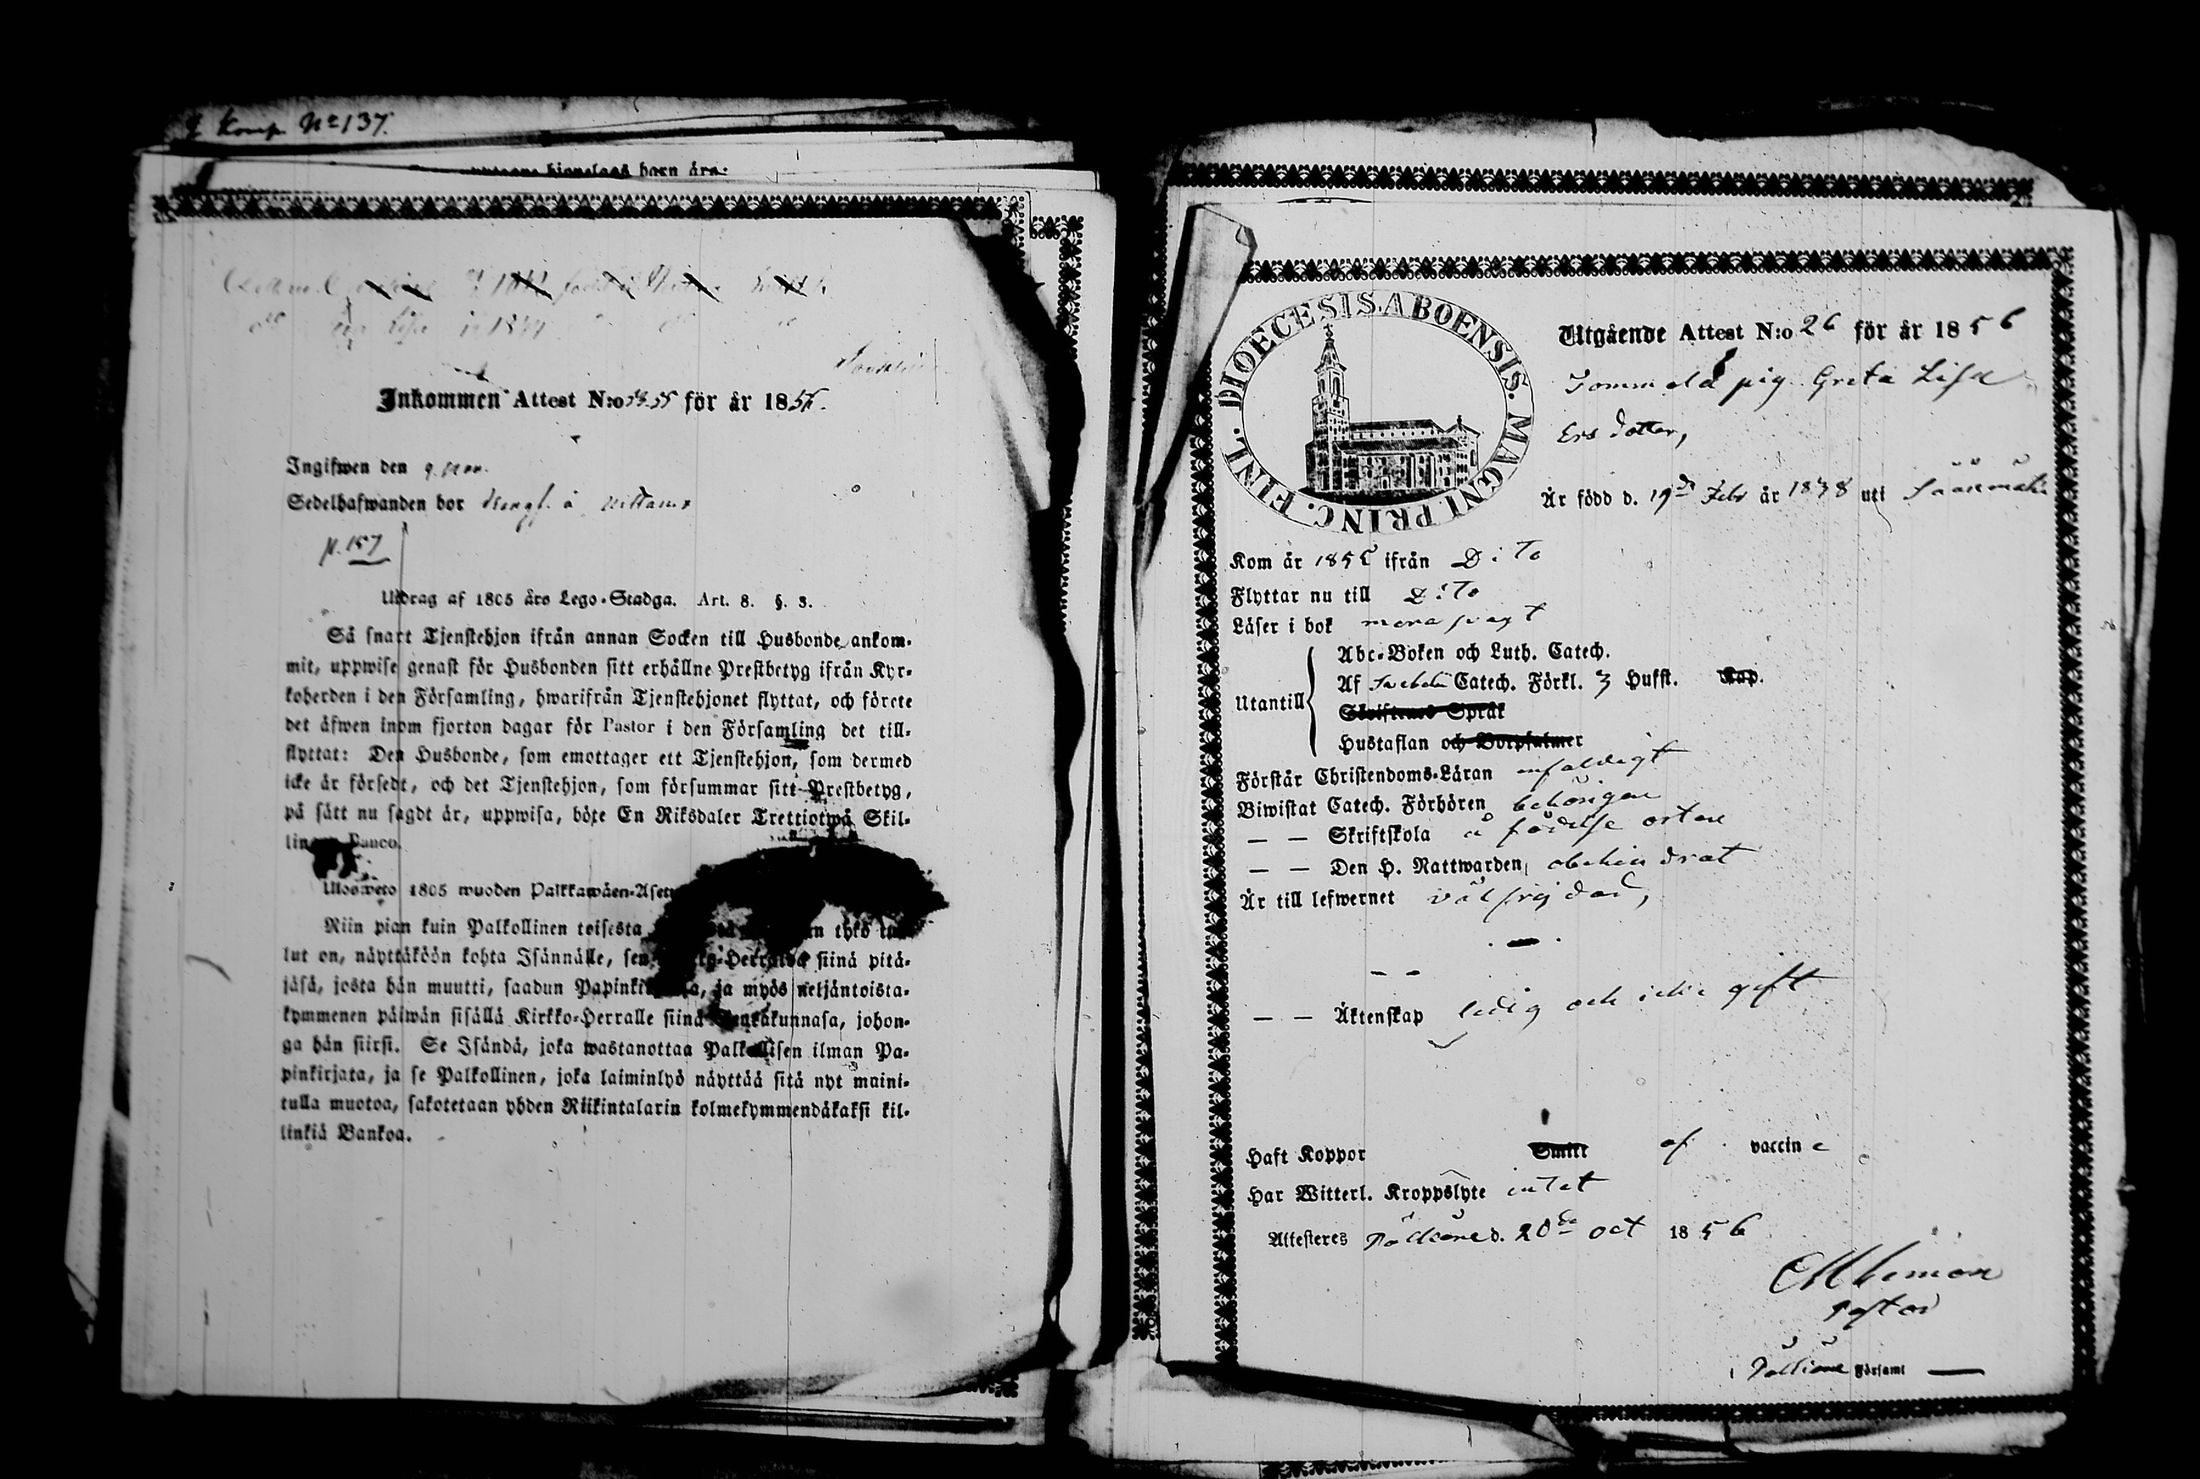 Komp. No 137.
hionelags barn äro:
Inkommen Attest N:o för år 1856.
Ingifwen den 9. Nov.
Sedelhafwanden bor
p. 157
Utdrag af 1805 års Lego-Stadga. Art. 8. §. 3.
Så snart Tjenstehjon ifrån annan Socken till Husbonde ankom-
mit, uppwise genast för Husbonden sitt erhållne Prestbetyg ifrån Kyr-
koherden i den Församling, hwarifrån Tjenstehjonet flyttat, och förete
det äfwen inom fjorton dagar för Pastor i den Församling det till-
flyttat: Den Husbonde, som emottager ett Tjenstehjon, som dermed
icke är försedt, och det Tjenstehjon, som försummar sitt Prestbetyg,
på sätt nu sagdt är, uppwisa, böte En Riksdaler Trettiotwå Skil-
Banco.
Ulosweto 1805 wuoden Palkkawäen-Asetu
Niin pian kuin Palkollinen toisesta tykö
lut on, näyttäköön kohta Isännälle, sen Herralda siinä pitä-
jäsä, josta hän muutti, saadun ja myös neljäntoista-
kymmenen päiwän sisällä Kirkko-Herralle siinä Seurakunnasa, johon-
ga hän siirsi. Se Isändä, joka wastanottaa Palkollisen ilman Pa-
pinkirjata, ja se Palkollinen, joka laiminlyö näyttää sitä nyt maini-
tulla muotoa, sakotetaan yhden Riikintalarin kolmekymmendäkaksi kil-
linkiä Bankoa.
DIOECESIS. ABOENSIS. MAGNI PRINC. FINL.
Utgående Attest N:o 26 för år 1856
pig. Greta Lisa
Ersdotter,
Är född d. 19de Febr år 1838 uti Sääxmäki
Kom år 1855 ifrån D:To
Flyttar nu till D:To
Läser i bok
Utantill
Abc-Boken och Luth. Catech.
Af Svebelii Catech. Förkl. 3 Hufst. Kap.
Skriftenes Språk
Hustaflan och Botpsalmer
Förstår Christendoms-Läran enfaldigt
Biwistat Catech. Förhören behörigen
— — Skriftskola å födelse orten
— — Den H. Nattwarden obehindrat
Är till lefwernet välfrejdad,
— — Äktenskap ledig och icke gift
Haft Koppor Smitt af vaccine
Har Witterl. Kroppslyte intet
Attesteres Pälkäne d. 20de oct 1856
Pastor
Pälkäne Församl